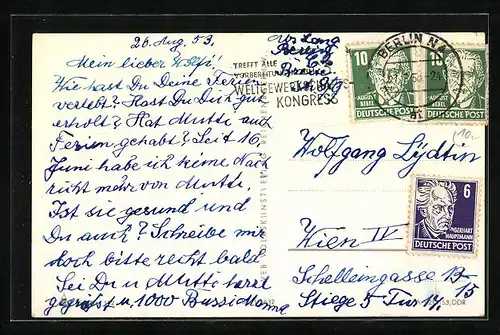 26. Aug. 53.
Mein lieber Wolfi!
Wie hast Du Deine Ferien
verlebt? Hast Du Dich gut
erholt? Hat Mutti auch
Ferien gehabt? Seit 16.
Juni habe ich keine Nach
richt mehr von Mutti.
Ist sie gesund und
Du auch? Schreibe mir
doch bitte recht bald
Sei Du u Mutti herzl
gegrüsst u. 1000 Bussi
Berlin
TREFFT ALLE
WELTGEWERKSCHAFTS-
KONGRESS
BERLIN N4
10
10
AUGUST
BEBEL
DEUTSCHE POST
DEUTSCHE POST
10.-
6
GERHART
HAUPTMANN
DEUTSCHE POST
Wolfgang Lydtin
Wien IV
Schelleingasse 13-
15
Stiege 5 Tür 14.